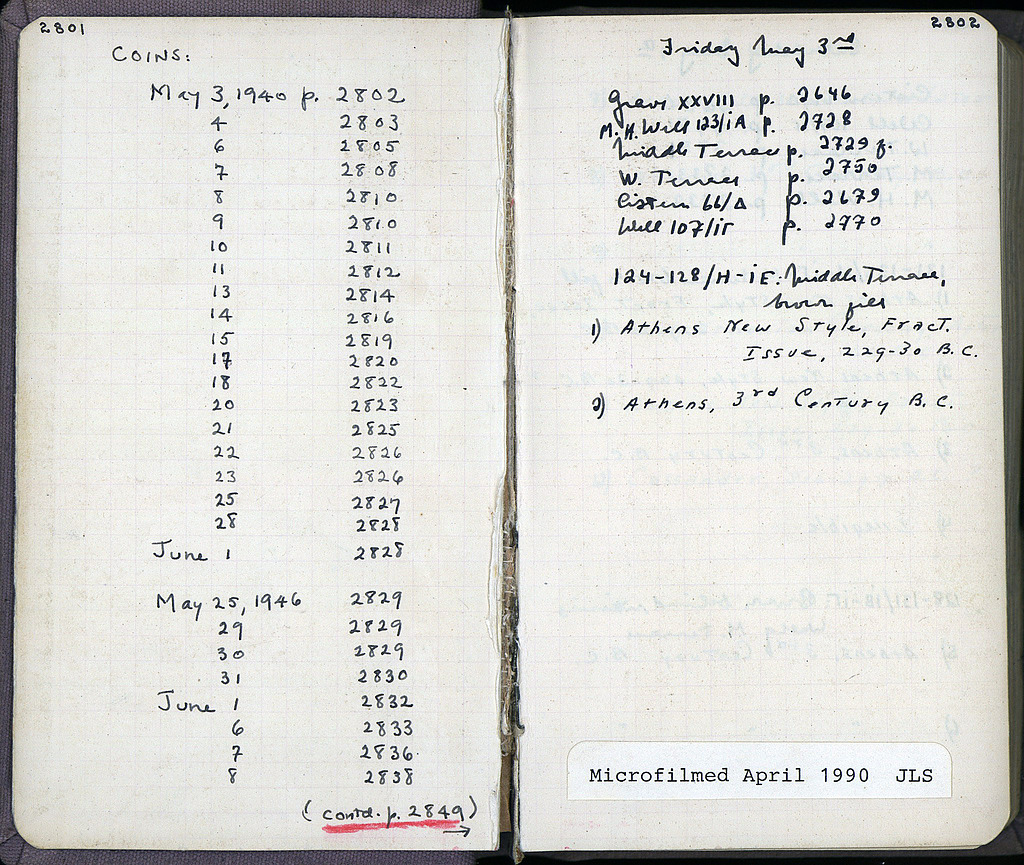 2801
COINS:
May 3, 1940 p. 2802
4 2803
6 2805
7 2808
8 2810
9 2810
10 2811
11 2812
13 2814
14 2816
15 2819
17 2820
18 2822
20 2823
21 2825
22 2826
23 2826
25 2827
28 2828
June 1 2828
May 25, 1946 2829
29 2829
30 2829
31 2830
June 1 2832
6 2833
7 2836
8 2838
(contd. p. 2849)
→
2802
Friday May 3rd
Grave XXVIII p. 2646
M.H. Well 123/ p. 2728
Middle Terrace p. 2729 f.
W. Terrace p. 2750
Cistern 66/Δ p. 2679
Well 107/ p. 2770
124-128/H-ΙΕ: Middle Terrace,
brown
1) Athens New Style, Fract.
Issue, 229-30 B.C.
2) Athens, 3rd Century B.C.
Microfilmed April 1990 JLS